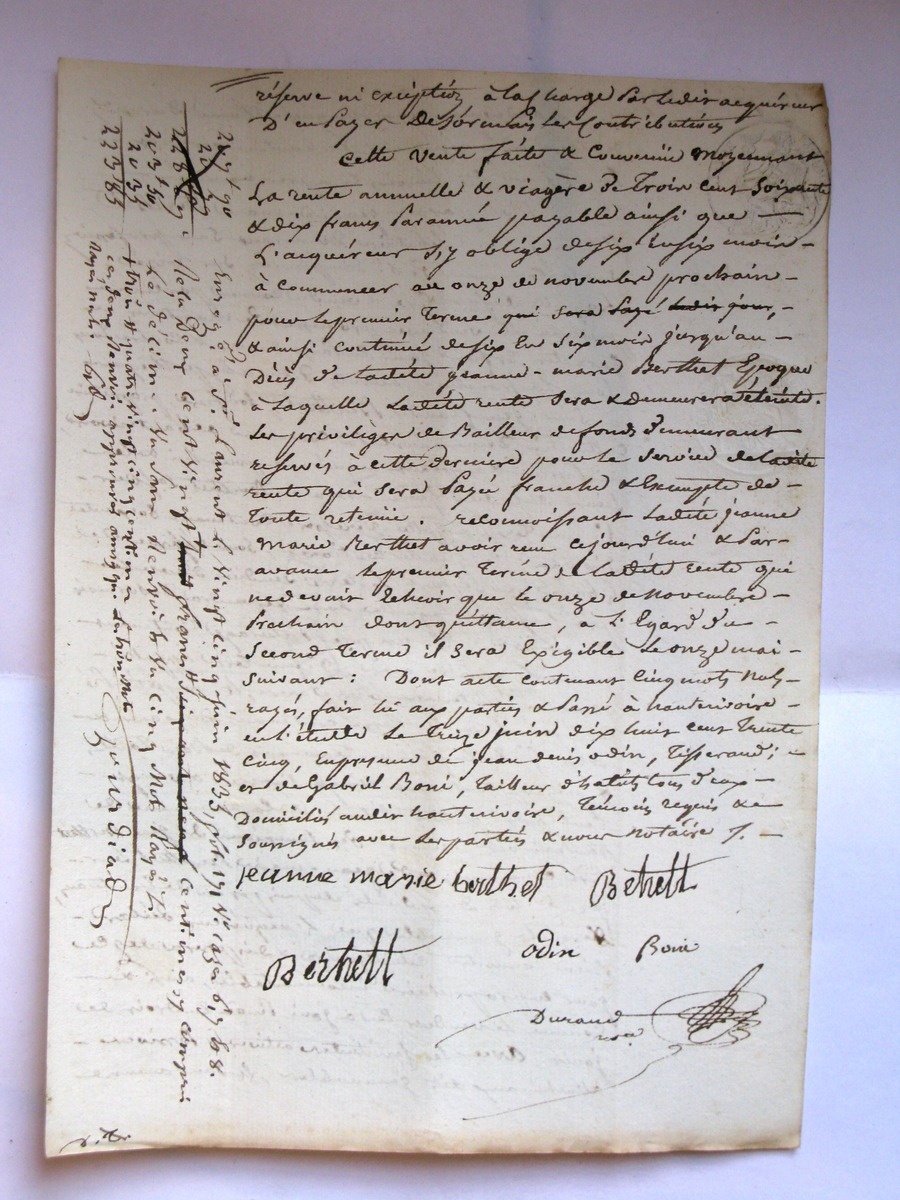 réserve ni exception à la charge par ledit acquéreur
D'en payer Desormais les Contributions
Cette vente faite & Convenüe moyennant
La rente annuelle & viagère de Trois Cent Soixante
& dix francs Par année payable ainsi que —
L'acquéreur s'y oblige de six En six mois —
à Commencer au onze de novembre prochain —
pour le premier Terme qui sera Payé ledit jour, —
& ainsi Continué de six En six mois jusqu'au —
Décès de Ladite jeanne-marie Berthet Epoque
à Laquelle Ladite rente sera & Demeurera éteinte.
Les privilèges de Bailleur de fonds demeurant
reservés à cette Dernière pour le service de ladite
rente qui sera Payée franche & Exempte de —
Toute retenüe. reconnoissant Ladite jeanne
Marie Berthet avoir reçu cejourd'hui & Par —
avance le premier Terme de Ladite rente qui
ne devoit Echoir que le onze de novembre —
Prochain dont quittance, à L'Egard du —
Second Terme il sera Exigible le onze mai —
Suivant : Dont acte contenant Cinq mots nuls
rayés, fait lu aux parties & Passé à hauterivoire —
en l'étude Le Treize juin dix huit cent Trente
Cinq, En presence de jean denis odin, Tisserand ;
et de Gabriel Boni, Tailleur d'habits tous deux —
Domiciliés audit hauterivoire, Témoins requis &
Soussignés avec les parties & nous notaire /. —
jeanne marie berthet Bertett
Bertett odin Boni
Durand
nre
Enregé à St Laurent le vingt cinq juin 1835, fol. 171 Vo. cases 6, 7 & 8.
Reçu Deux Cent vingt francs centimes y compris
Le décime. Vu sans Renvoi & vu cinq Mots Rayés
trois quatre vingt cinq centimes
ces deux Renvois approuvés ainsi que
Rayés nuls.
Jourdiad
203 50
20 35
223 85